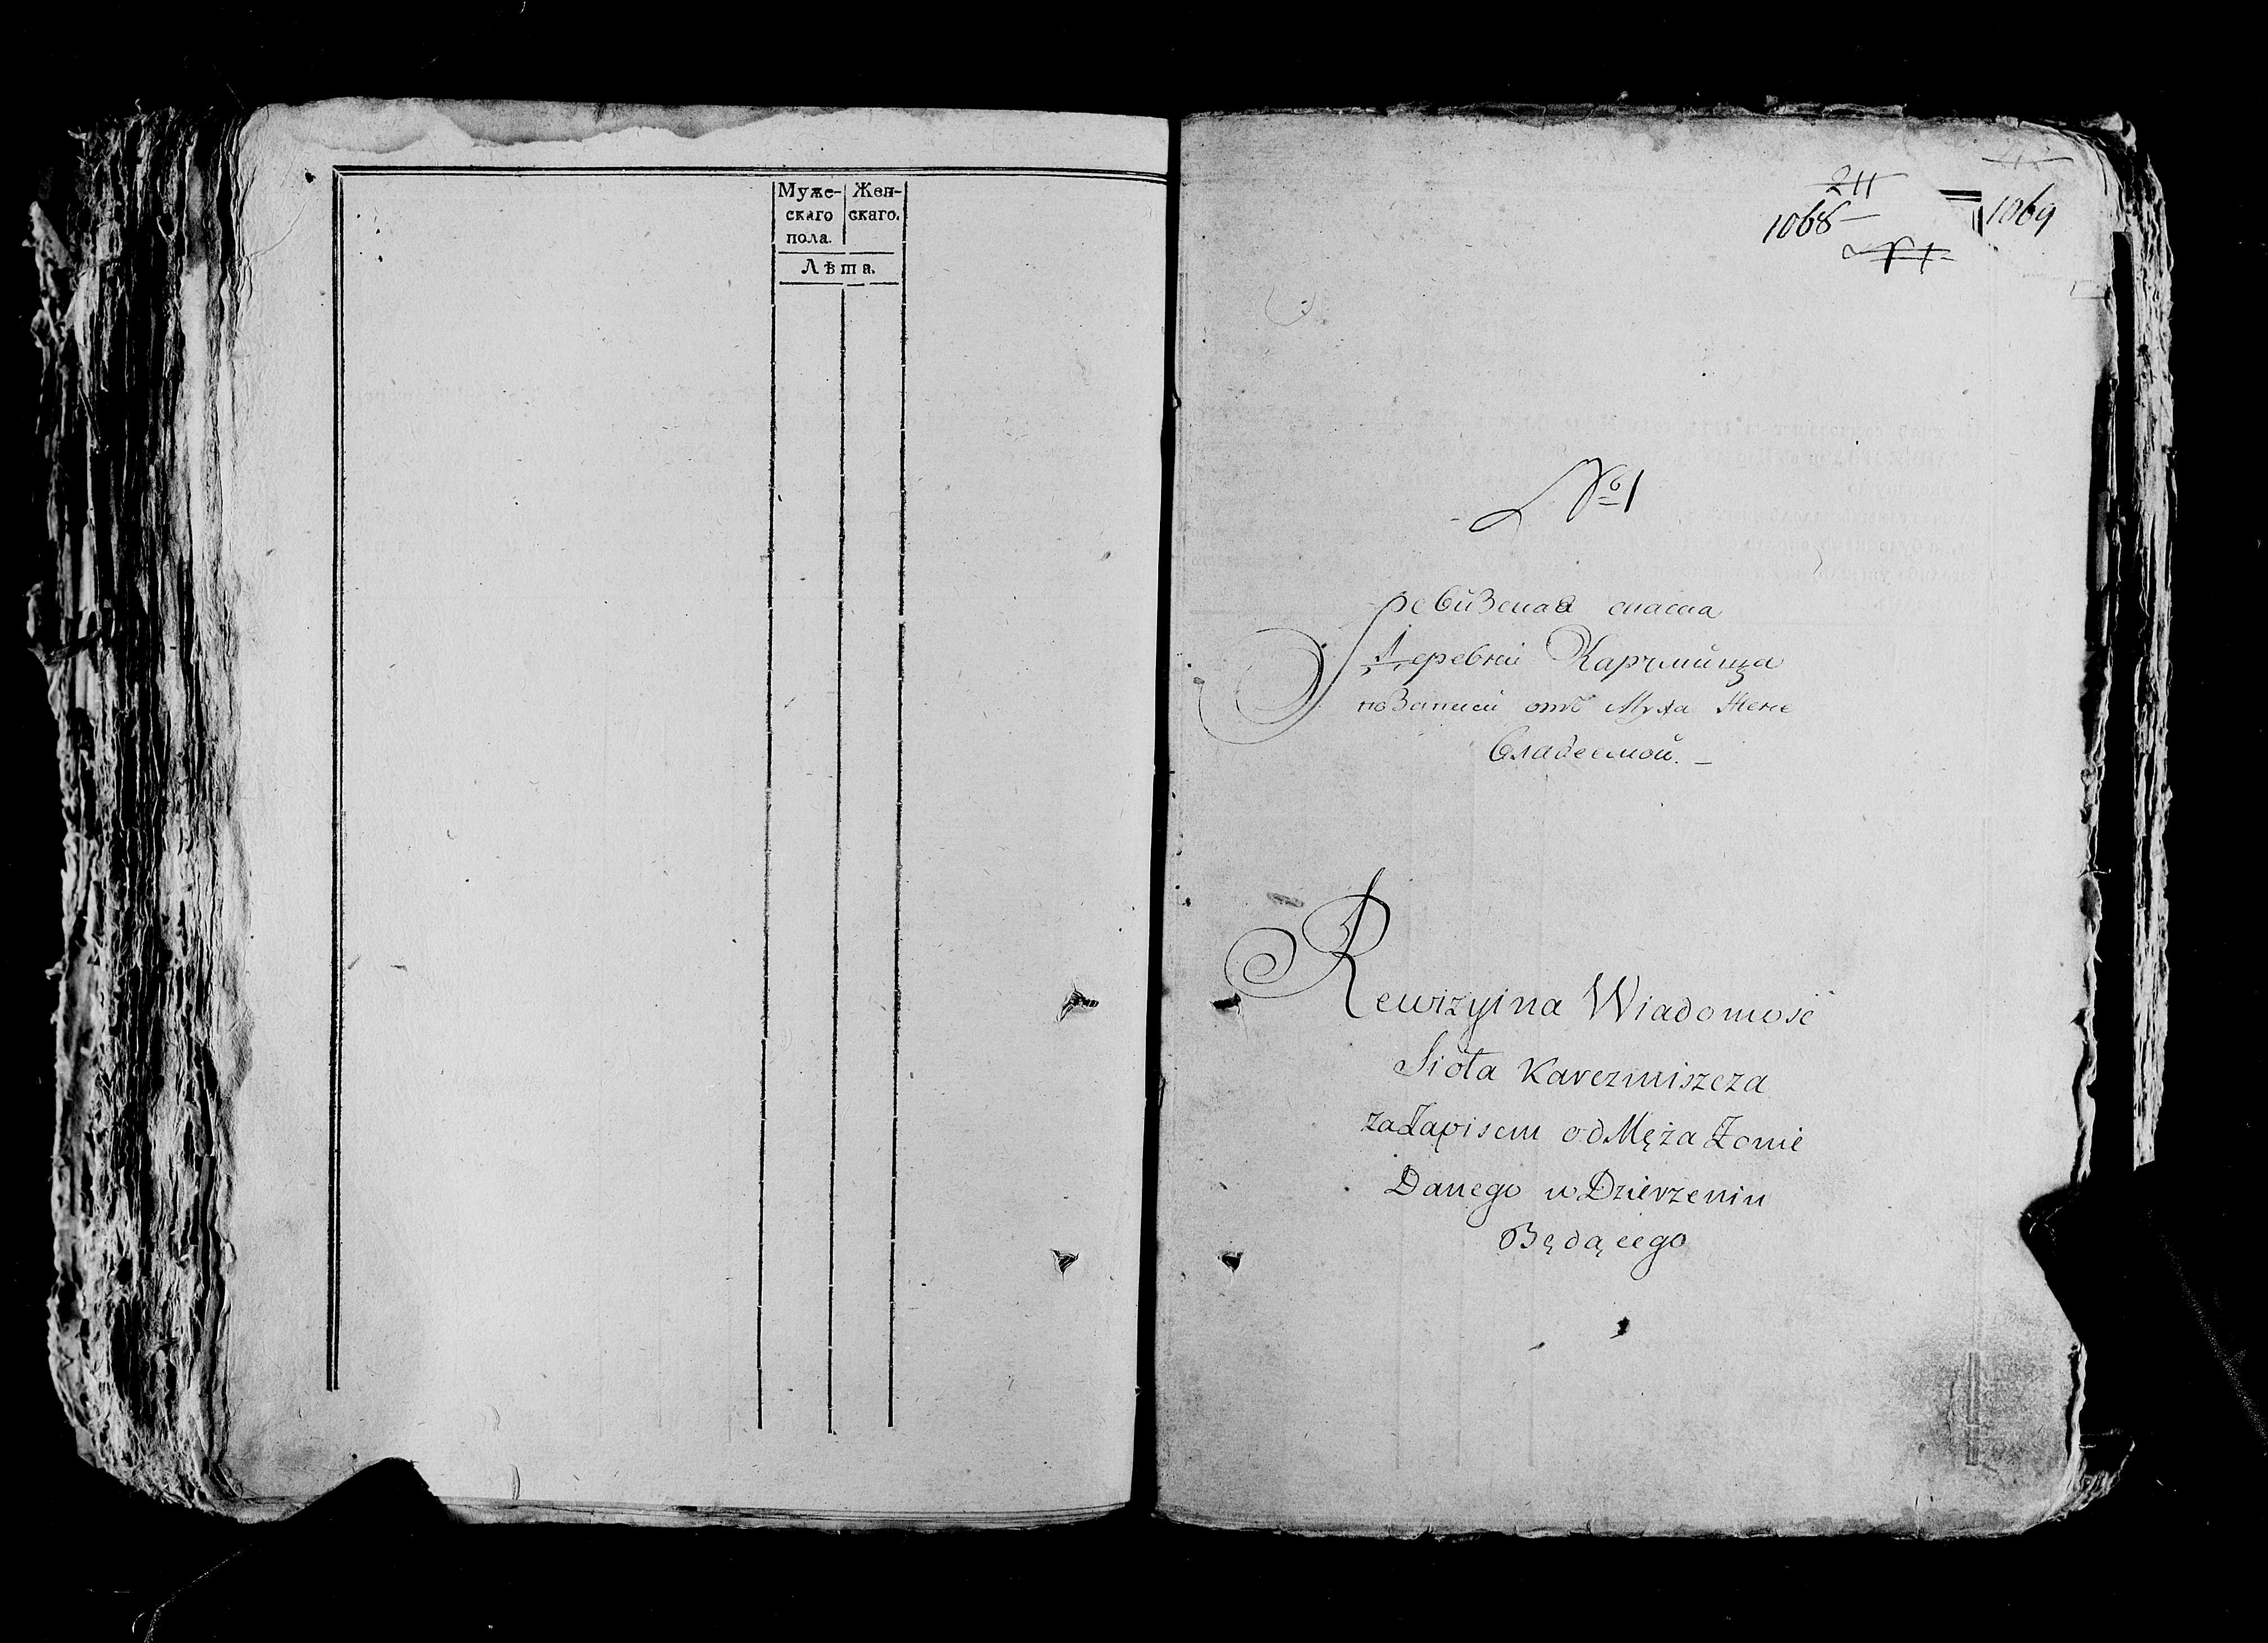 Муже-
скаго
пола.
Жен-
скаго.
Лѣта.
211
1068
1069
№ 1
ревизская сказка
Деревни Карчмища
по Записи отъ Мужа Жене
Владеемой. –
Rewizyina Wiadomość
Sioła Karczmiszcza
za Zapisem od Męża Żonie
Danego w Dzierzeniu
Będącego